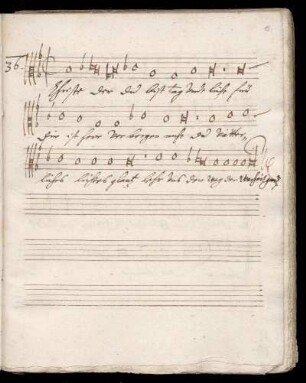 36.
Christe der du bist tag und licht für
dir ist herr verborgen nicht du Vätter,
liches lichtes glantz lehr uns den weg der